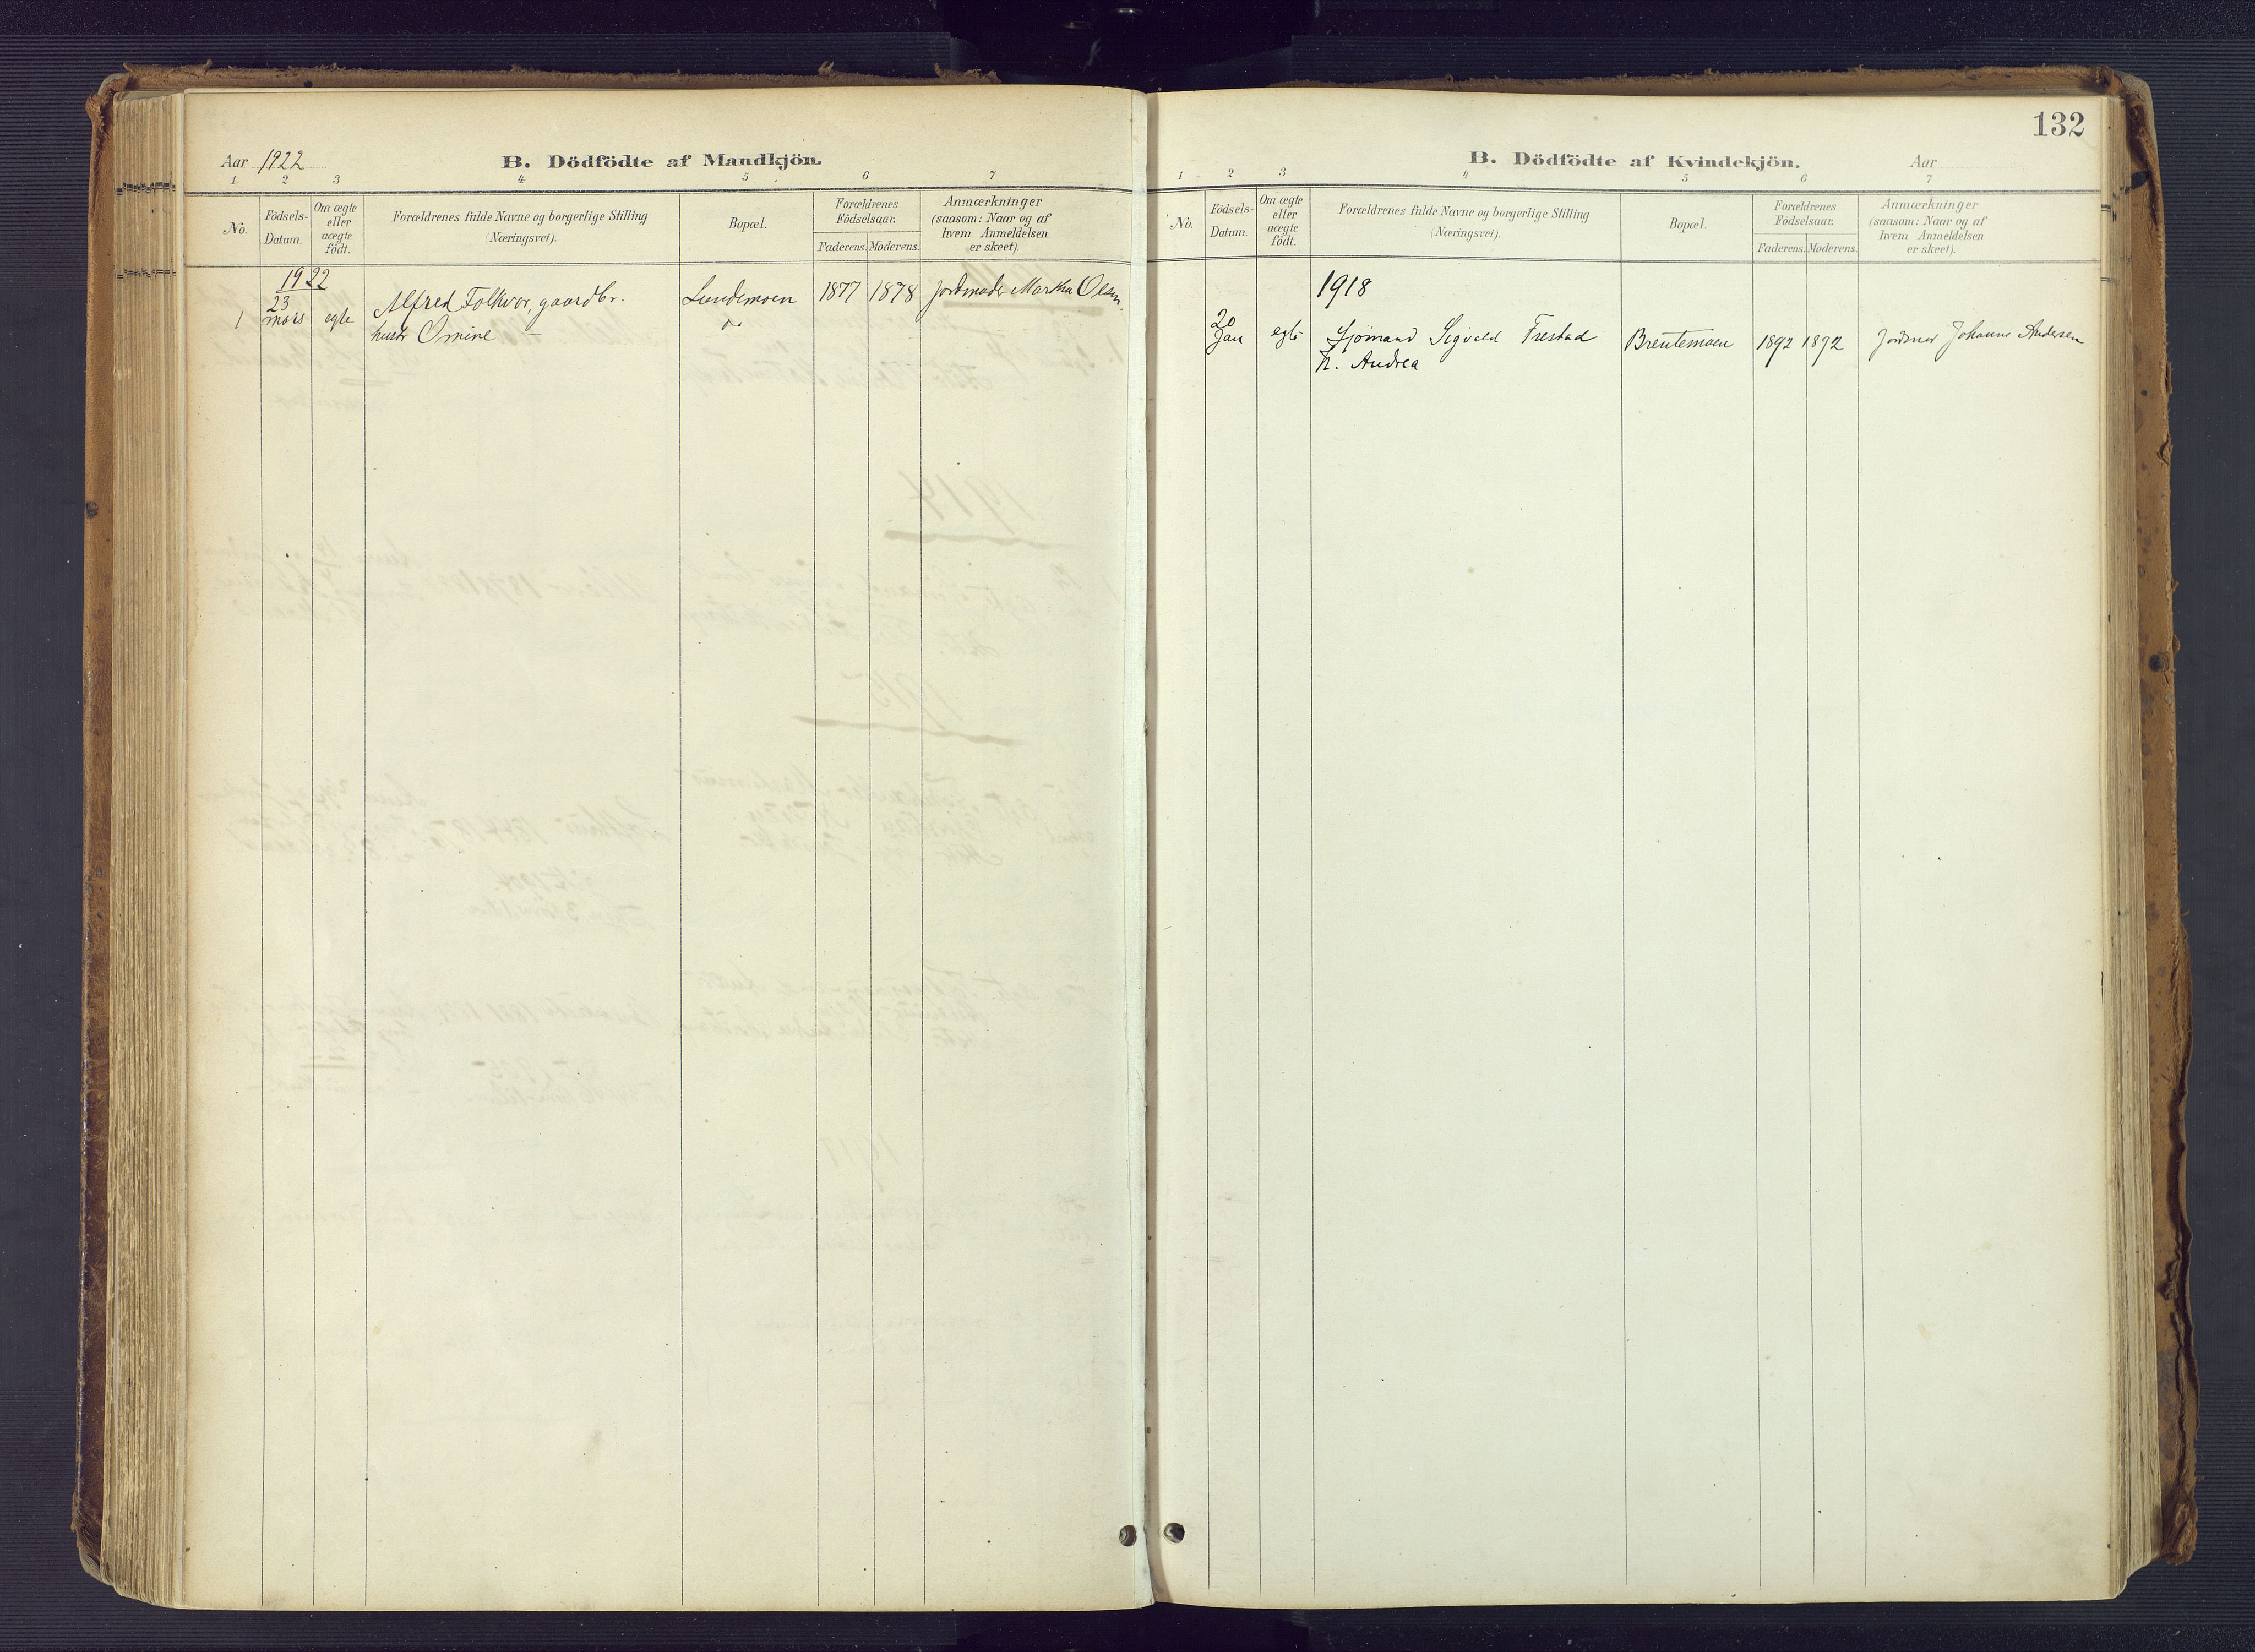 Aar 1922
B. Dödfödte af Mandkjön.
1 2 3 4 5 6 7
No.
Födsels-Datum.
Om ægte eller uægte födt.
Forældrenes fulde Navne og borgerlige Stilling
(Næringsvei).
Bopæl.
Forældrenes Födselsaar.
Faderens. Moderens.
Anmærkninger
(saasom: Naar og af
hvem Anmeldelsen
er skeet).
1922
1 23 mars egte Alfred Folkvor, gaardbr. Lundemoen 1877 1878 Jordmoder Martha Olsen
hustr Omine do
132
B. Dödfödte af Kvindekjön.
Aar
1 2 3 4 5 6 7
No.
Födsels-Datum.
Om ægte eller uægte födt.
Forældrenes fulde Navne og borgerlige Stilling
(Næringsvei).
Bopæl.
Forældrenes Födselsaar.
Faderens. Moderens.
Anmærkninger
(saasom: Naar og af
hvem Anmeldelsen
er skeet).
1918
20 Jan egte Sjömand Sigvald Frestad Brentemoen 1892 1892 Jordmor Johanne Andersen
h. Andrea